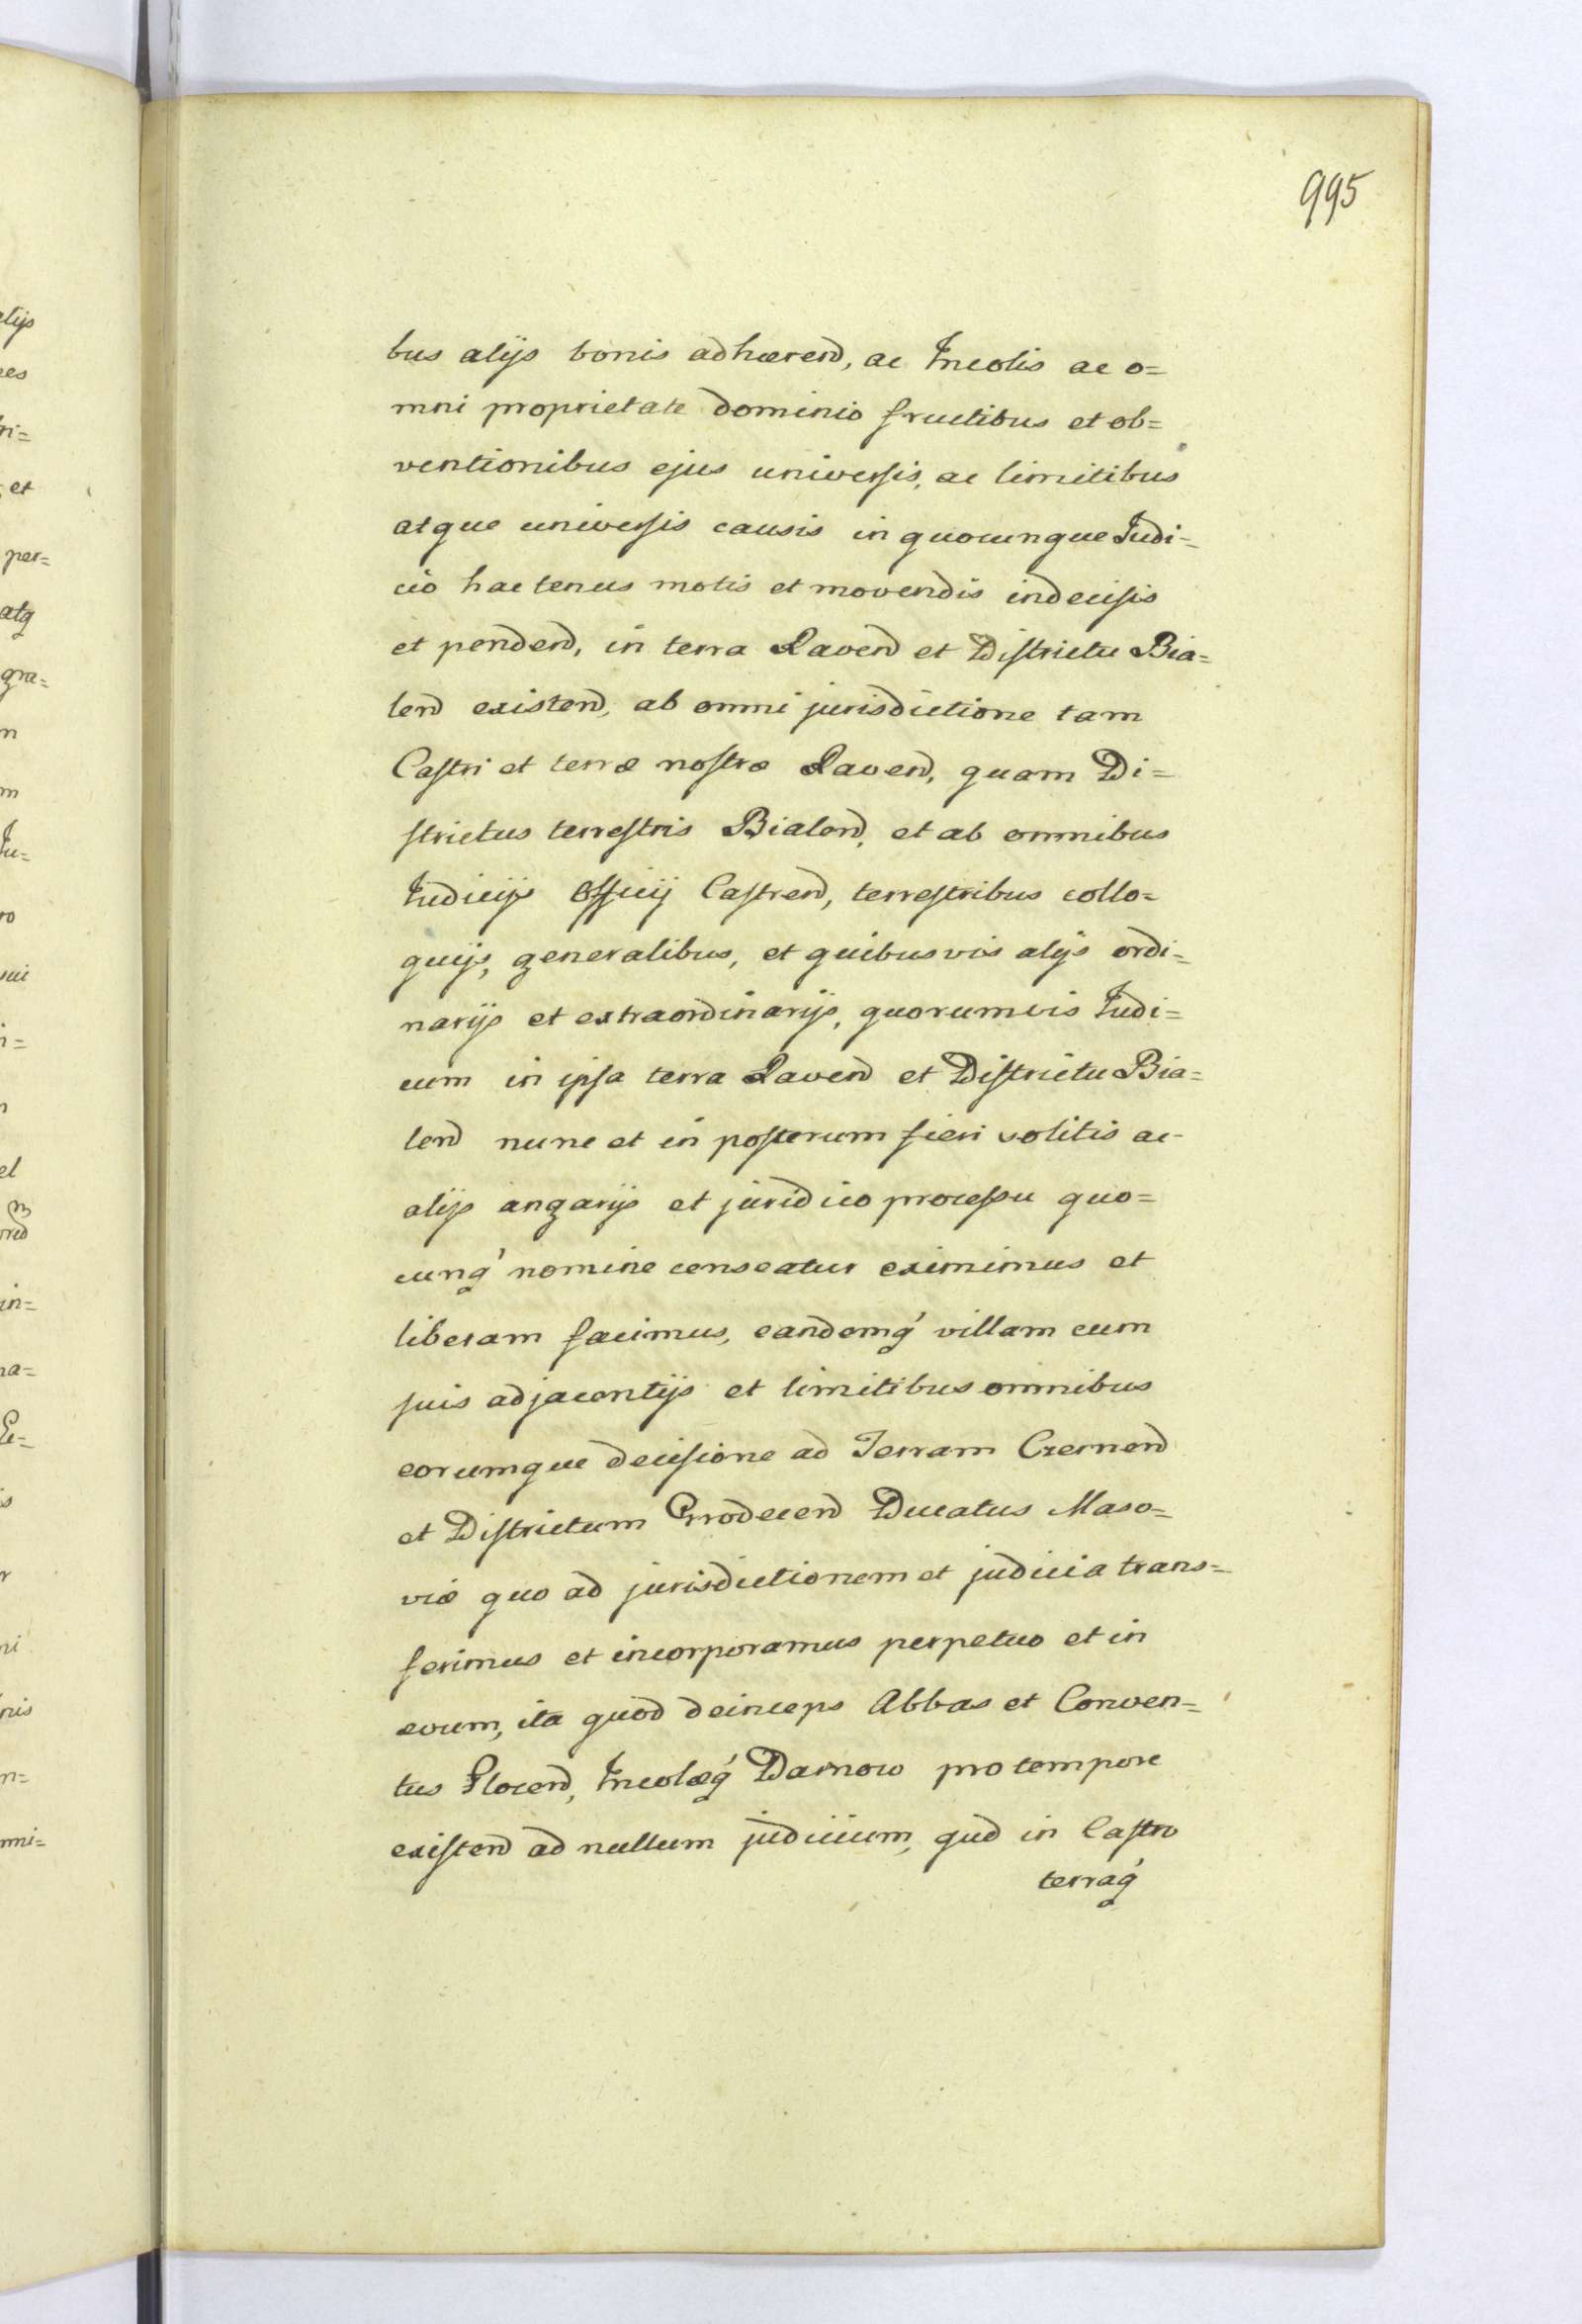 995
bus alijs bonis adhærend, ac Incolis ac o=
mni proprietate dominio fructibus et ob=
ventionibus ejus universis, ac limitibus
atque universis causis in quocunque Judi=
cio hactenus motis et movendis indecisis
et pendend, in terra Ravend et Districtu Bia=
lend existend, ab omni jurisdictione tam
Castri et terræ nostræ Ravend, quam Di=
strictus terrestris Bialend, et ab omnibus
Judicijs Officij Castrend, terrestribus collo=
quijs, generalibus, et quibusvis alijs ordi=
narijs et extraordinarijs, quorumvis Judi=
cum in ipsa terra Ravend et Districtu Bia=
lend nunc et in posterum fieri solitis ac
alijs angarijs et juridico processu quo=
cunq' nomine censeatur eximimus et
liberam facimus, eandemq' villam cum
suis adjacentijs et limitibus omnibus
eorumque decisione ad Terram Czernend
et Districtum Grodecend Ducatus Maso=
viæ quo ad jurisdictionem et judicia trans=
ferimus et incorporamus perpetuo et in
ævum, ita quod deinceps Abbas et Conven=
tus Plocend, Incolæq' Darnow pro tempore
existend ad nullum judicium, qud in Castro
terraq'